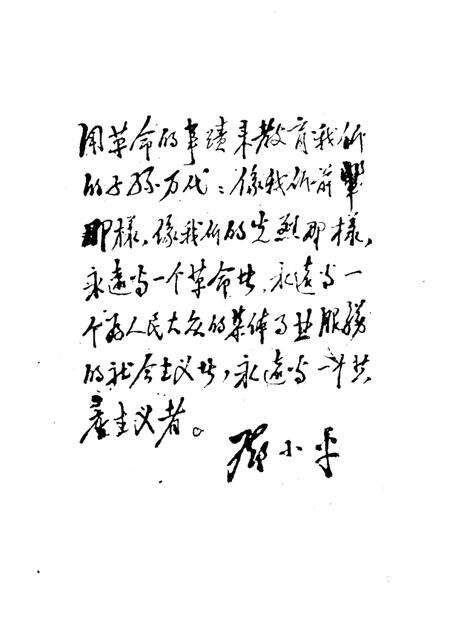 用革命的事蹟来教育我们
的子孫万代：像我们前輩
那樣，像我们的先烈那樣，
永遠当一个革命者，永遠当一
个为人民大众的集体事业服務
的社会主义者，永遠当一个共
產主义者。
邓小平